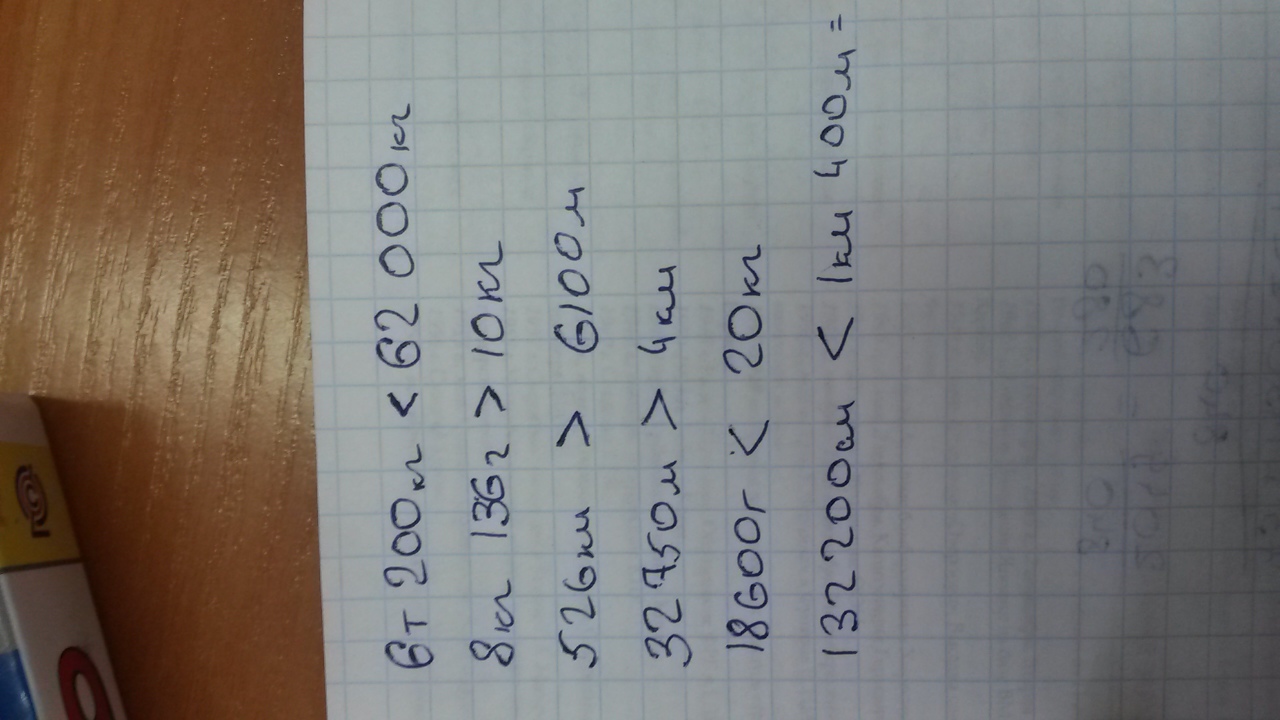 6т 200кг < 62 000кг
8кг 136г > 10кг
526км > 6100м
32750м > 4км
18600г < 20кг
132200см < 1км 400м =